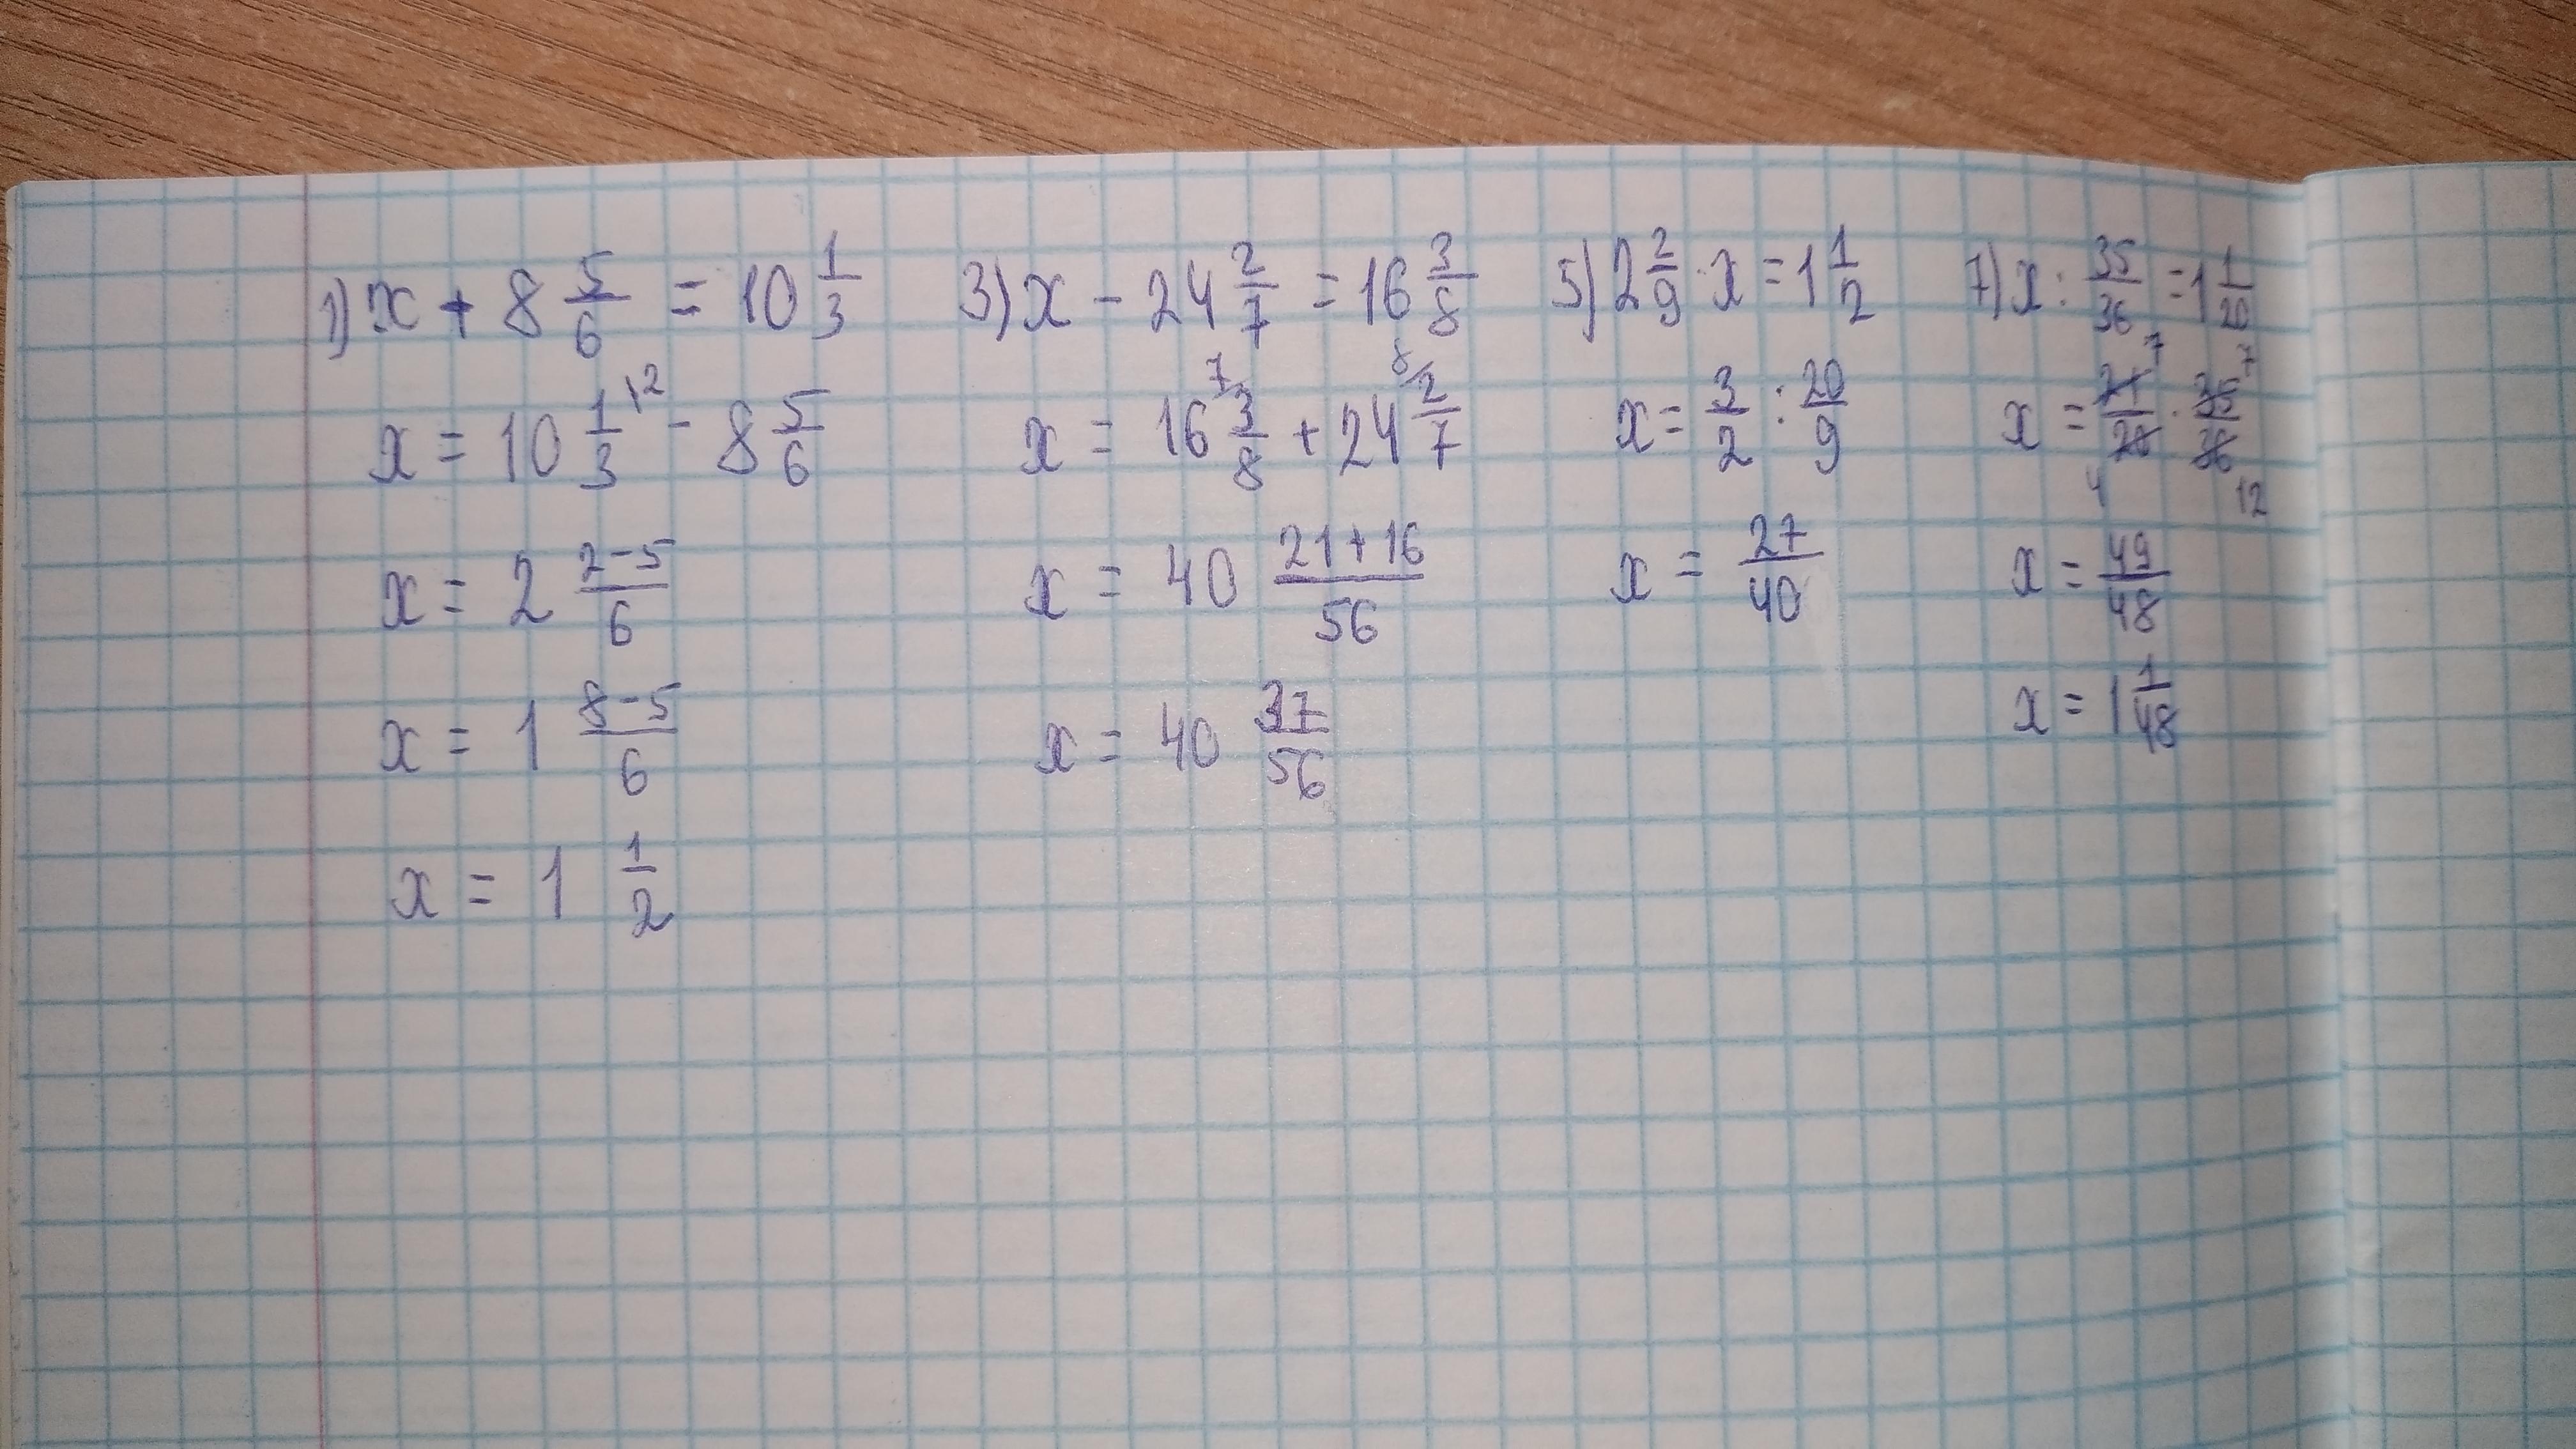 1) x + 8 5/6 = 10 1/3
x = 10 1/3 \2 - 8 5/6
x = 2 2-5/6
x = 1 8-5/6
x = 1 1/2
3) x - 24 2/7 = 16 3/8
x = 16 7/ 3/8 + 24 8/ 2/7
x = 40 21+16/56
x = 40 37/56
5) 2 2/9 · x = 1 1/2
x = 3/2 : 20/9
x = 27/40
7) x : 35/36 = 1 1/20
x = 21/20 7 4 · 35/36 7 12
x = 49/48
x = 1 1/48